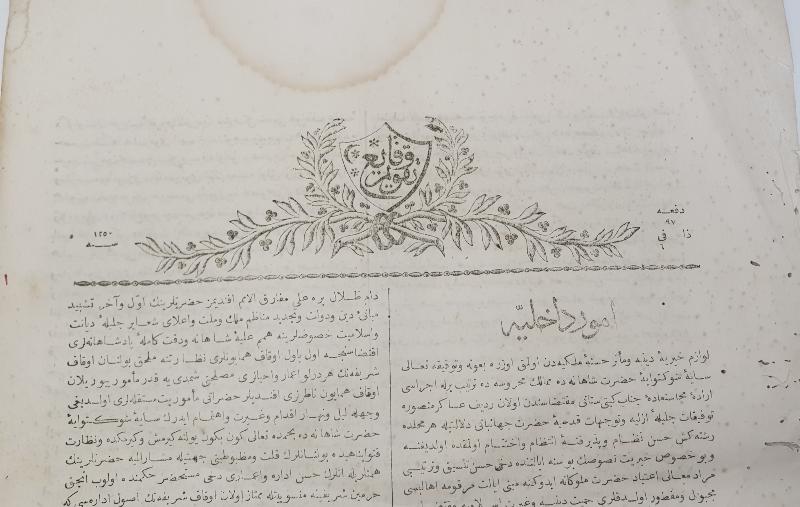 تقويم
وقايع
دفعه
٩٧
في ذا
١٢٥٠
سنه
امور داخليه
لوازم خيريۀ دينيه ومآثر حسنۀ ملكيه‌دن اولمق اوزره بعونه وتوفيقه تعالى
سايۀ شوكتوايۀ حضرت شاهانه ده ممالك محروسه ده ترتيب يله اجراسى
ارادۀ مقتضاسندن اولان رديف عساكر منصوره
توفيقات جليلۀ ازليه وتوجهات قدسيۀ حضرت جهانبانى دلالتيله هر محلده
رشته‌كش حسن نظام وپذيرفتۀ انتظام واختتام اولمقده اولديغنه
وبو خصوص خيريت نصوصك بو سنه ايالتنده دخى حسن تنسيق وترتيبى
مراد معالى اعتياد حضرت ملوكانه ايدوكنه مبنى ايالت مرقومه اهاليسى
مجبول ومفطور اولدقلرى
دام ظلال بره على مفارق الانم افنديمز حضرتلرينك اول وآخر تشييد
مبانئ دين ودولت وتجديد مناظم ملك وملت واعلاى شعاير جليلۀ ديانت
واسلاميت خصوصلرينه همم عليۀ شاهانه ودقت كاملۀ پادشاهانه‌لرى
اقتضاسنجه اول باول اوقاف همايونلرى نظارتنه ملحق بولنان اوقاف
شريفه‌نك هر درلو اعمار واحيازى مصلحتى شمدى يه قدر مأمور بيوريلان
اوقاف همايون ناظرلرى افنديلر حضراتى مأموريت مستقله‌لرى اولديغى
وجهله ليل ونهار اقدام وغيرت واهتمام ايدرك سايۀ شوكتوايۀ
حضرت شاهانه ده بحمده تعالى كون بكون يولنه كيرمش وكيرمكده ونظارت
فتوايناهيده بولنانلرك قلت ومظبوطيتى جهتيله مشاراليه حضرتلرينك
همتلريله انلرك حسن اداره واعمارى دخى مستحضر حكمنده اولوب انجق
حرمين شريفينه منسوبيتله ممتاز اولان اوقاف شريفه‌نك اصول اداره‌سى كه